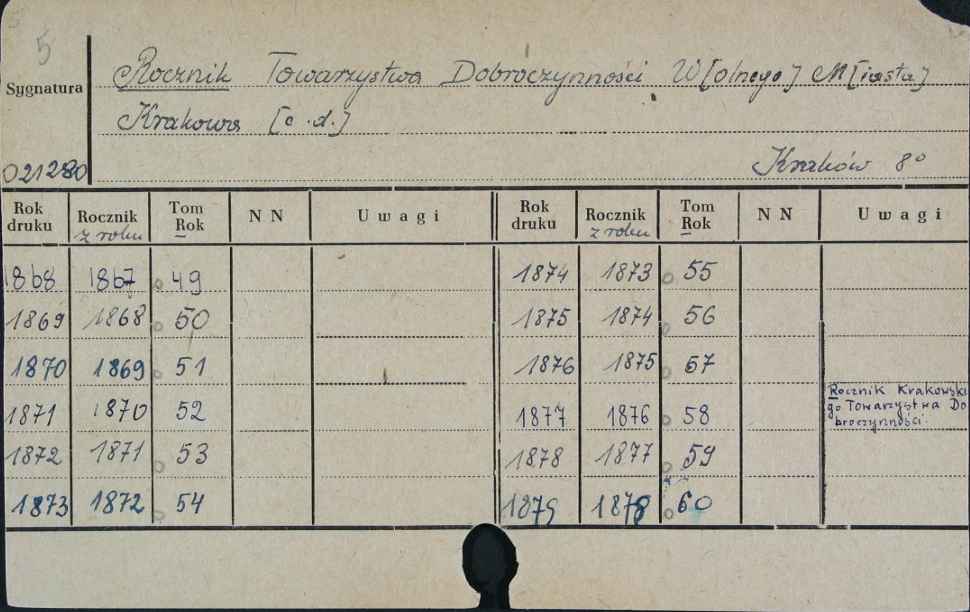 5
Sygnatura
021280
Rocznik Towarzystwa Dobroczynności W[olnego] M[iasta]
Krakowa [c.d.]
Kraków 8°
Rok druku | Rocznik z roku | Tom Rok | NN | Uwagi | Rok druku | Rocznik z roku | Tom Rok | NN | Uwagi
1868 1867 49 1874 1873 55
1869 1868 50 1875 1874 56
1870 1869 51 1876 1875 57
1871 1870 52 1877 1876 58 Rocznik Krakowski
go Towarzystwa Do
broczynności.
1872 1871 53 1878 1877 59
1873 1872 54 1879 1878 60